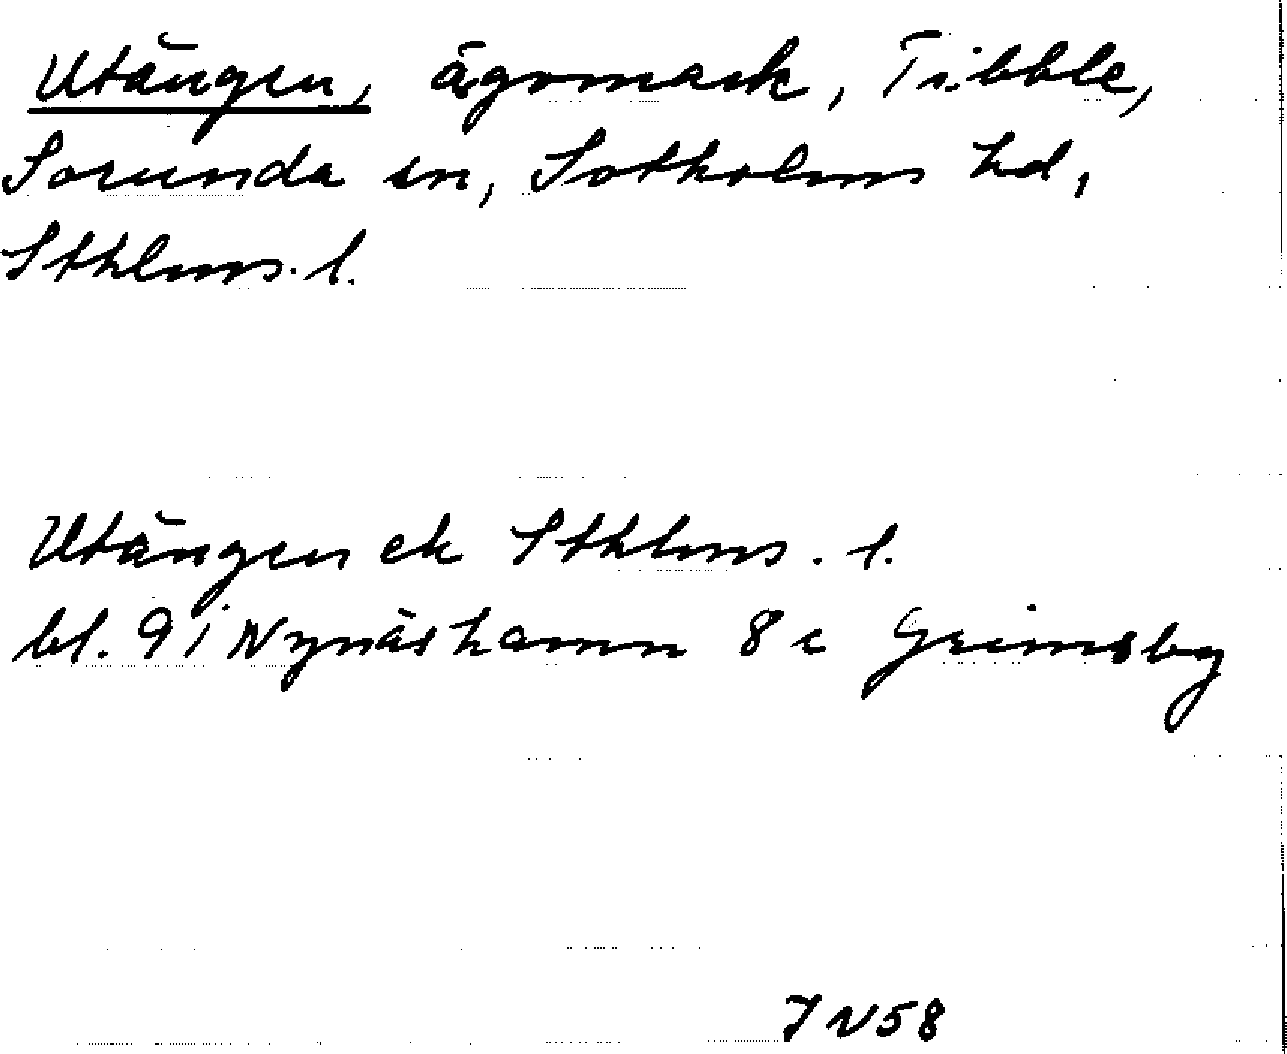 Utängen, ägomark, Tibble,
Sorunda sn, Sotholms hd,
Sthlms. l.
Utängen ek Sthlms. l.
bl. 91 Nynäshamn 8 c Grimsby
JN58